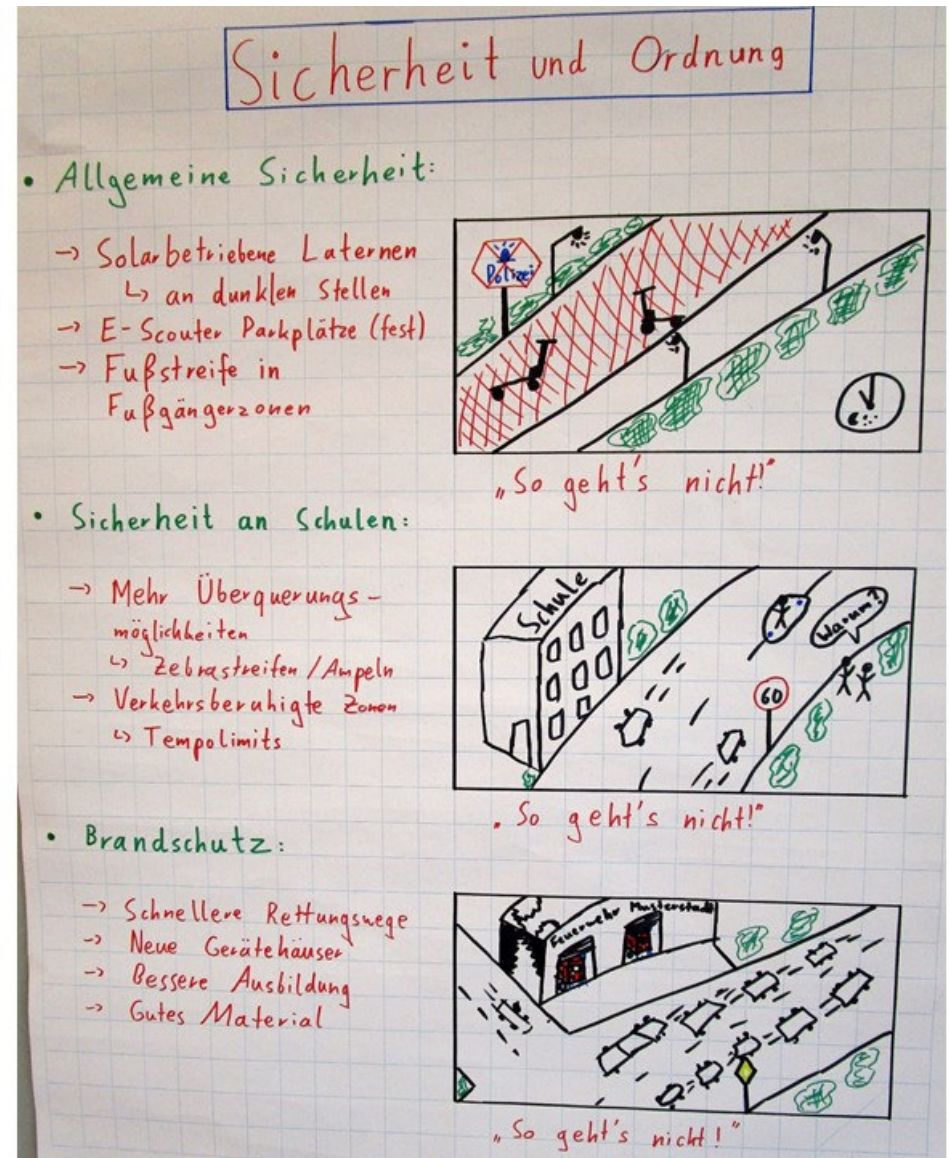 Sicherheit und Ordnung
• Allgemeine Sicherheit:
→ Solarbetriebene Laternen
↳ an dunklen Stellen
→ E-Scouter Parkplätze (fest)
→ Fußstreife in
Fußgängerzonen
Polizei
„So geht's nicht!"
• Sicherheit an Schulen:
→ Mehr Überquerungs-
möglichkeiten
↳ Zebrastreifen / Ampeln
→ Verkehrsberuhigte Zonen
↳ Tempolimits
Schule
Warum?
60
„So geht's nicht!"
• Brandschutz:
→ Schnellere Rettungswege
→ Neue Gerätehäuser
→ Bessere Ausbildung
→ Gutes Material
Feuerwehr Musterstadt
„So geht's nicht!"